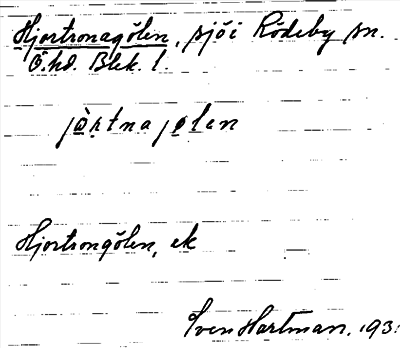 Hjortronagölen, sjö i Rödeby sn.
Ö. hd. Blek. l.
jòrtnajølen
Hjortrongölen, ek
Sven Hartman. 193